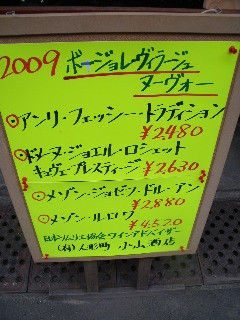 2009 ボージョレヴィラージュ
ヌーヴォー
アンリ・フェッシー・トラディション
¥2480
ドメーヌ・ジョエル・ロシェット
キュヴェ・プレスティージ ¥2,630
メゾン・ジョセフ・ドルーアン
¥2880
メゾン・ルロワ
¥4520
日本ソムリエ協会ワインアドバイザー
(有)人形町 小山酒店